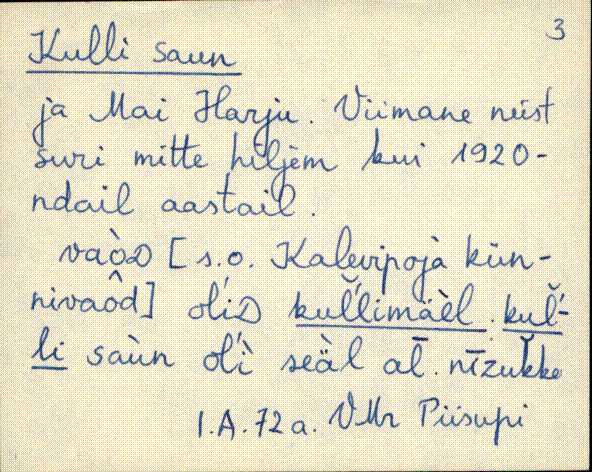 3
Kulli saun
ja Mai Harju. Viimane neist
suri mitte hiljem kui 1920-
ndail aastail.
vaòD [s.o. Kalevipojà kün-
nivaôd] olíD kuĺ̆limäèl. kuĺ̆-
li saùn olì seäl al̄. nīzuk̆ke
I.A. 72 a. VMr Piisupi